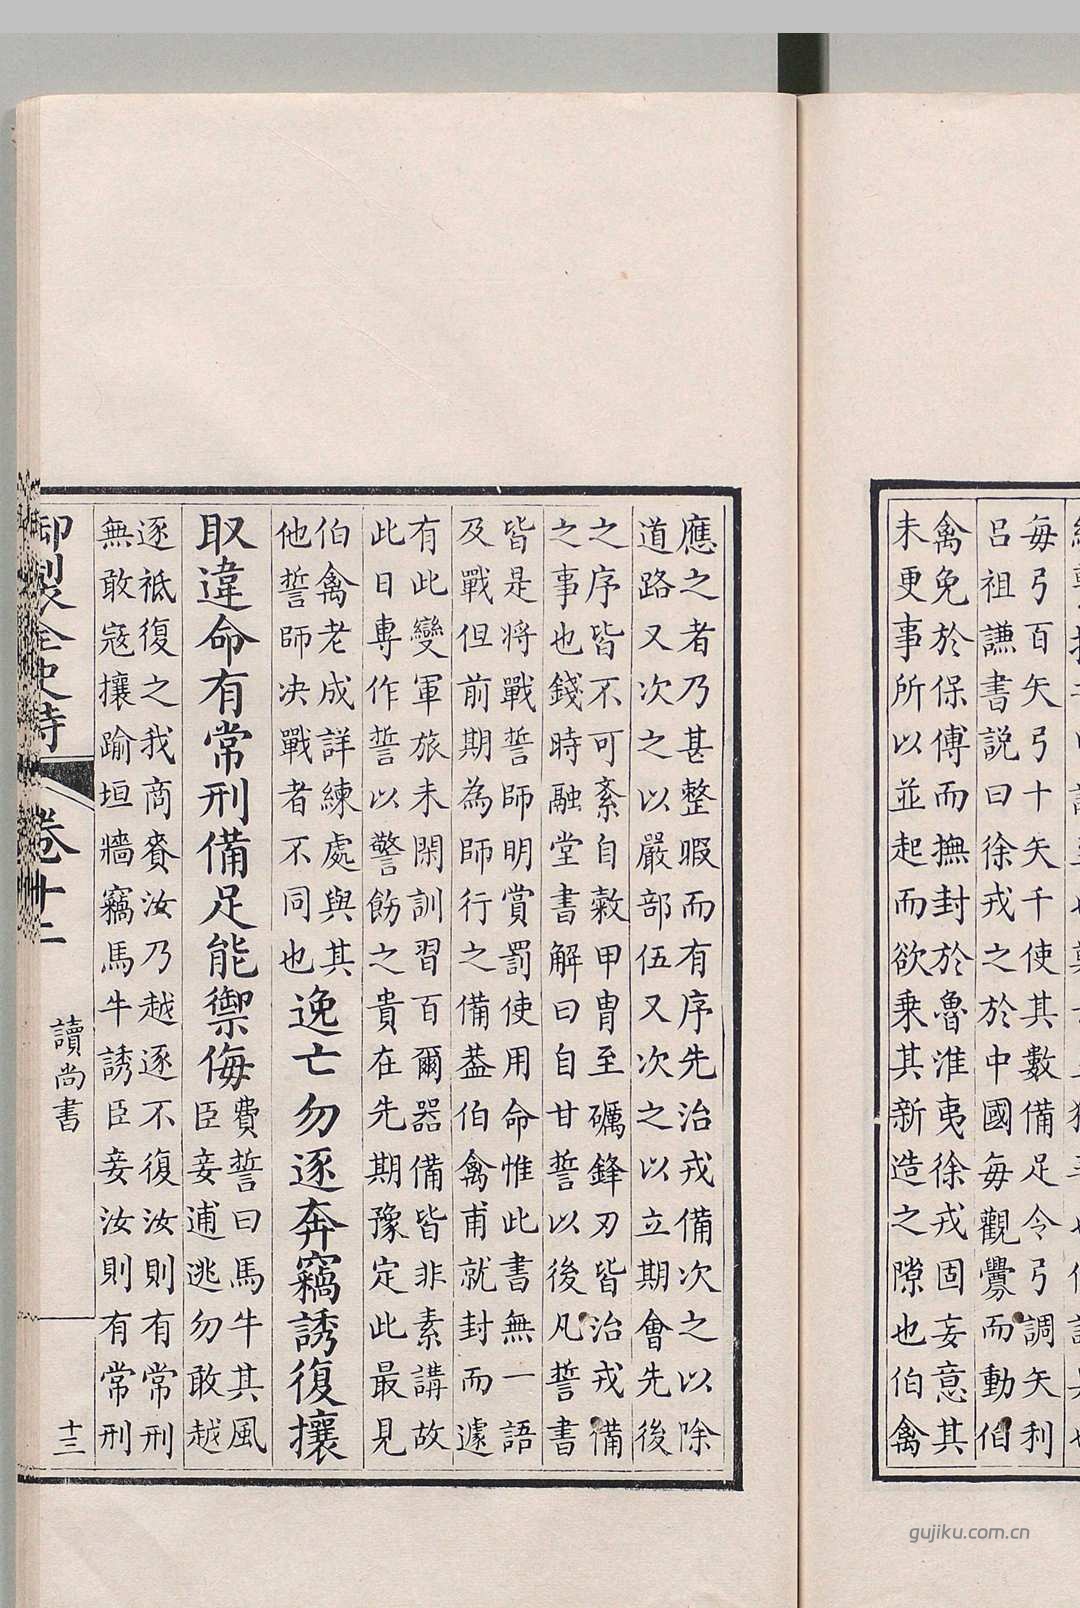 每弓百矢弓十矢千使其數備足令弓調矢利
呂祖謙書説曰徐戎之於中國每觀釁而動伯
禽免於保傅而撫封於魯淮夷徐戎固妄意其
未更事所以並起而欲乘其新造之隙也伯禽
應之者乃甚整暇而有序先治戎備次之以除
道路又次之以嚴部伍又次之以立期會先後
之序皆不可紊自敹甲冑至礪鋒刃皆治戎備
之事也錢時融堂書解曰自甘誓以後凡誓書
皆是将戰誓師明賞罰使用命惟此書無一語
及戰但前期為師行之備葢伯禽甫就封而遽
有此變軍旅未閑訓習百爾器備皆非素講故
此日專作誓以警飭之貴在先期豫定此最見
伯禽老成詳練處與其
他誓師决戰者不同也
逸亡勿逐奔竊誘復攘
取違命有常刑備足能禦侮
費誓曰馬牛其風
臣妾逋逃勿敢越
逐祗復之我商賚汝乃越逐不復汝則有常刑
無敢寇攘踰垣牆竊馬牛誘臣妾汝則有常刑
御製全史詩 卷十二 讀尚書 十三
gujiku.com.cn